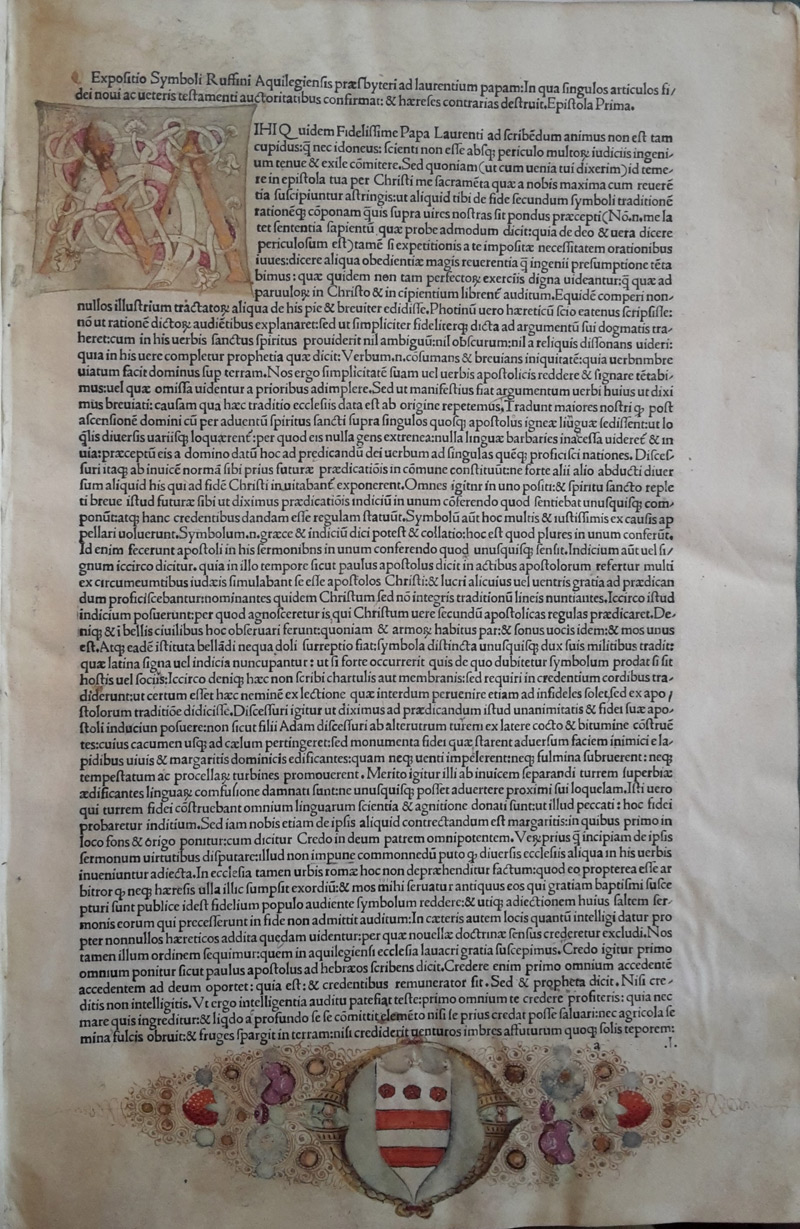 Expoſitio Symboli Ruffini Aquilegienſis præſbyteri ad laurentium papam: In qua ſingulos articulos fi/
dei noui ac ueteris teſtamenti auctoritatibus confirmat: & hæreſes contrarias deſtruit. Epiſtola Prima.
MIHI Quidem Fideliſſime Papa Laurenti ad ſcribēdum animus non eſt tam
cupidus: q̄ nec idoneus: ſcienti non eſſe abſq; periculo multoꝝ iudiciis ingeni-
um tenue & exile cōmitere. Sed quoniam (ut cum uenia tui dixerim) id teme-
re in epiſtola tua per Chriſti me ſacramēta quæ a nobis maxima cum reuerē
tia ſuſcipiuntur aſtringis: ut aliquid tibi de fide ſecundum ſymboli traditionē
rationēq; cōponam q̄uis ſupra uires noſtras ſit pondus præcepti (Nō.n. me la
tet ſententia ſapientū quæ probe admodum dicit: quia de deo & uera dicere
periculoſum eſt) tamē ſi expetitionis a te impoſitæ neceſſitatem orationibus
iuues: dicere aliqua obedientiæ magis reuerentia q̄ ingenii preſumptione tēta
bimus: quæ quidem non tam perfectoꝝ exerciis digna uideantur: q̄ quæ ad
paruuloꝝ in Chriſto & in cipientium librent̄ auditum. Equidē comperi non-
nullos illuſtrium tractatoꝝ aliqua de his pie & breuiter edidiſſe. Photinū uero hæreticū ſcio eatenus ſcripſiſſe:
nō ut rationē dictoꝝ audiētibus explanaret: ſed ut ſimpliciter fideliterq; dicta ad argumentū ſui dogmatis tra-
heret: cum in his uerbis ſanctus ſpiritus prouiderit nil ambiguū: nil obſcurum: nil a reliquis diſſonans uideri:
quia in his uere completur prophetia quæ dicit: Verbum.n. cōſumans & breuians iniquitatē: quia uerbnmbre
uiatum facit dominus ſup terram. Nos ergo ſimplicitatē ſuam uel uerbis apoſtolicis reddere & ſignare tētabi-
mus: uel quæ omiſſa uidentur a prioribus adimplere. Sed ut manifeſtius fiat argumentum uerbi huius ut dixi
mus breuiati: cauſam qua hæc traditio eccleſiis data eſt ab origine repetemus. Tradunt maiores noſtri ꝙ poſt
aſcenſionē domini cū per aduentū ſpiritus ſancti ſupra ſingulos quoſq; apoſtolus igneæ liūguæ ſediſſent: ut lo
q̄lis diuerſis uariiſq; loquærent̄: per quod eis nulla gens extrenea: nulla linguæ barbaries inacceſſa uideret̄ & in
uia: præceptū eis a domino datū hoc ad predicandū dei uerbum ad ſingulas quēq; proficiſci nationes. Diſceſ-
ſuri itaq; ab inuicē normā ſibi prius futuræ prædicatiōis in cōmune conſtituūt: ne forte alii alio abducti diuer
ſum aliquid his qui ad fidē Chriſti inuitabant̄ exponerent. Omnes igitnr in uno poſiti: & ſpiritu ſancto reple
ti breue iſtud futuræ ſibi ut diximus prædicatiōis indiciū in unum cōferendo quod ſentiebat unuſquiſq; com-
ponūt: atq; hanc credentibus dandam eſſe regulam ſtatuūt. Symbolū aūt hoc multis & iuſtiſſimis ex cauſis ap
pellari uoluerunt. Symbolum.n. græce & indiciū dici poteſt & collatio: hoc eſt quod plures in unum conferūt.
Id enim fecerunt apoſtoli in his ſermonibns in unum conferendo quod unuſquiſq; ſenſit. Indicium aūt uel ſi/
gnum iccirco dicitur. quia in illo tempore ſicut paulus apoſtolus dicit in actibus apoſtolorum refertur multi
ex circumeumtibus iudæis ſimulabant ſe eſſe apoſtolos Chriſti: & lucri alicuius uel uentris gratia ad prædican
dum proficiſcebantur: nominantes quidem Chriſtum ſed nō integris traditionū lineis nuntiantes. Iccirco iſtud
indicium poſuerunt: per quod agnoſceretur is qui Chriſtum uere ſecundū apoſtolicas regulas prædicaret. De-
niq; & ī bellis ciuilibus hoc obſeruari ferunt: quoniam & armoꝝ habitus par: & ſonus uocis idem: & mos unus
eſt. Atq; eadē iſtituta bellādi nequa doli ſurreptio fiat: ſymbola diſtincta unuſquiſq; dux ſuis militibus tradit:
quæ latina ſigna uel indicia nuncupantur: ut ſi forte occurrerit quis de quo dubitetur ſymbolum prodat ſi ſit
hoſtis uel ſociis: Iccirco deniq; hæc non ſcribi chartulis aut membranis: ſed requiri in credentium cordibus tra-
diderunt: ut certum eſſet hæc neminē ex lectione quæ interdum peruenire etiam ad infideles ſolet, ſed ex apo/
ſtolorum traditiōe didiciſſe. Diſceſſuri igitur ut diximus ad prædicandum iſtud unanimitatis & fidei ſuæ apo-
ſtoli induciun poſuere: non ſicut filii Adam diſceſſuri ab alterutrum turem ex latere cocto & bitumine cōſtruē
tes: cuius cacumen uſq; ad cælum pertingeret: ſed monumenta fidei quæ ſtarent aduerſum faciem inimici e la-
pidibus uiuis & margaritis dominicis edificantes: quam neq; uenti impelerent: neq; fulmina ſubruerent: neq;
tempeſtatum ac procellaꝝ turbines promouerent. Merito igitur illi ab inuicem ſeparandi turrem ſuperbiæ
ædificantes linguaꝝ confuſione damnati ſunt: ne unuſquiſq; poſſet aduertere proximi ſui loquelam. Iſti uero
qui turrem fidei cōſtruebant omnium linguarum ſcientia & agnitione donati ſunt: ut illud peccati: hoc fidei
probaretur inditium. Sed iam nobis etiam de ipſis aliquid contrectandum eſt margaritis: in quibus primo in
loco fons & origo ponitur: cum dicitur Credo in deum patrem omnipotentem. Veꝝ prius q̄ incipiam de ipſis
ſermonum uirtutibus diſputare: illud non impune commonnedū puto ꝙ diuerſis eccleſiis aliqua in his uerbis
inueniuntur adiecta. In eccleſia tamen urbis romæ hoc non depræhenditur factum: quod eo propterea eſſe ar
bitror ꝙ neq; hæreſis ulla illic ſumpſit exordiū: & mos mihi ſeruatur antiquus eos qui gratiam baptiſmi ſuſce
pturi ſunt publice ideſt fidelium populo audiente ſymbolum reddere: & utiq; adiectionem huius ſaltem ſer-
monis eorum qui preceſſerunt in fide non admittit auditum: In cæteris autem locis quantū intelligi datur pro
pter nonnullos hæreticos addita quędam uidentur: per quæ nouellæ doctrinæ ſenſus crederetur excludi. Nos
tamen illum ordinem ſequimur: quem in aquilegienſi eccleſia lauacri gratia ſuſcepimus. Credo igitur primo
omnium ponitur ſicut paulus apoſtolus ad hebræos ſcribens dicit. Credere enim primo omnium accedentē
accedentem ad deum oportet: quia eſt: & credentibus remunerator fit. Sed & propheta dicit. Niſi cre-
ditis non intelligitis. Vt ergo intelligentia auditu patefiat teſte: primo omnium te credere profiteris: quia nec
mare quis ingreditur: & liq̄do a profundo ſe ſe cōmittit elemēto niſi ſe prius credat poſſe ſaluari: nec agricola ſe
mina fulcis obruit: & fruges ſpargit in terram: niſi crediderit uenturos imbres affuturum quoq; ſolis teporem:
a .I.